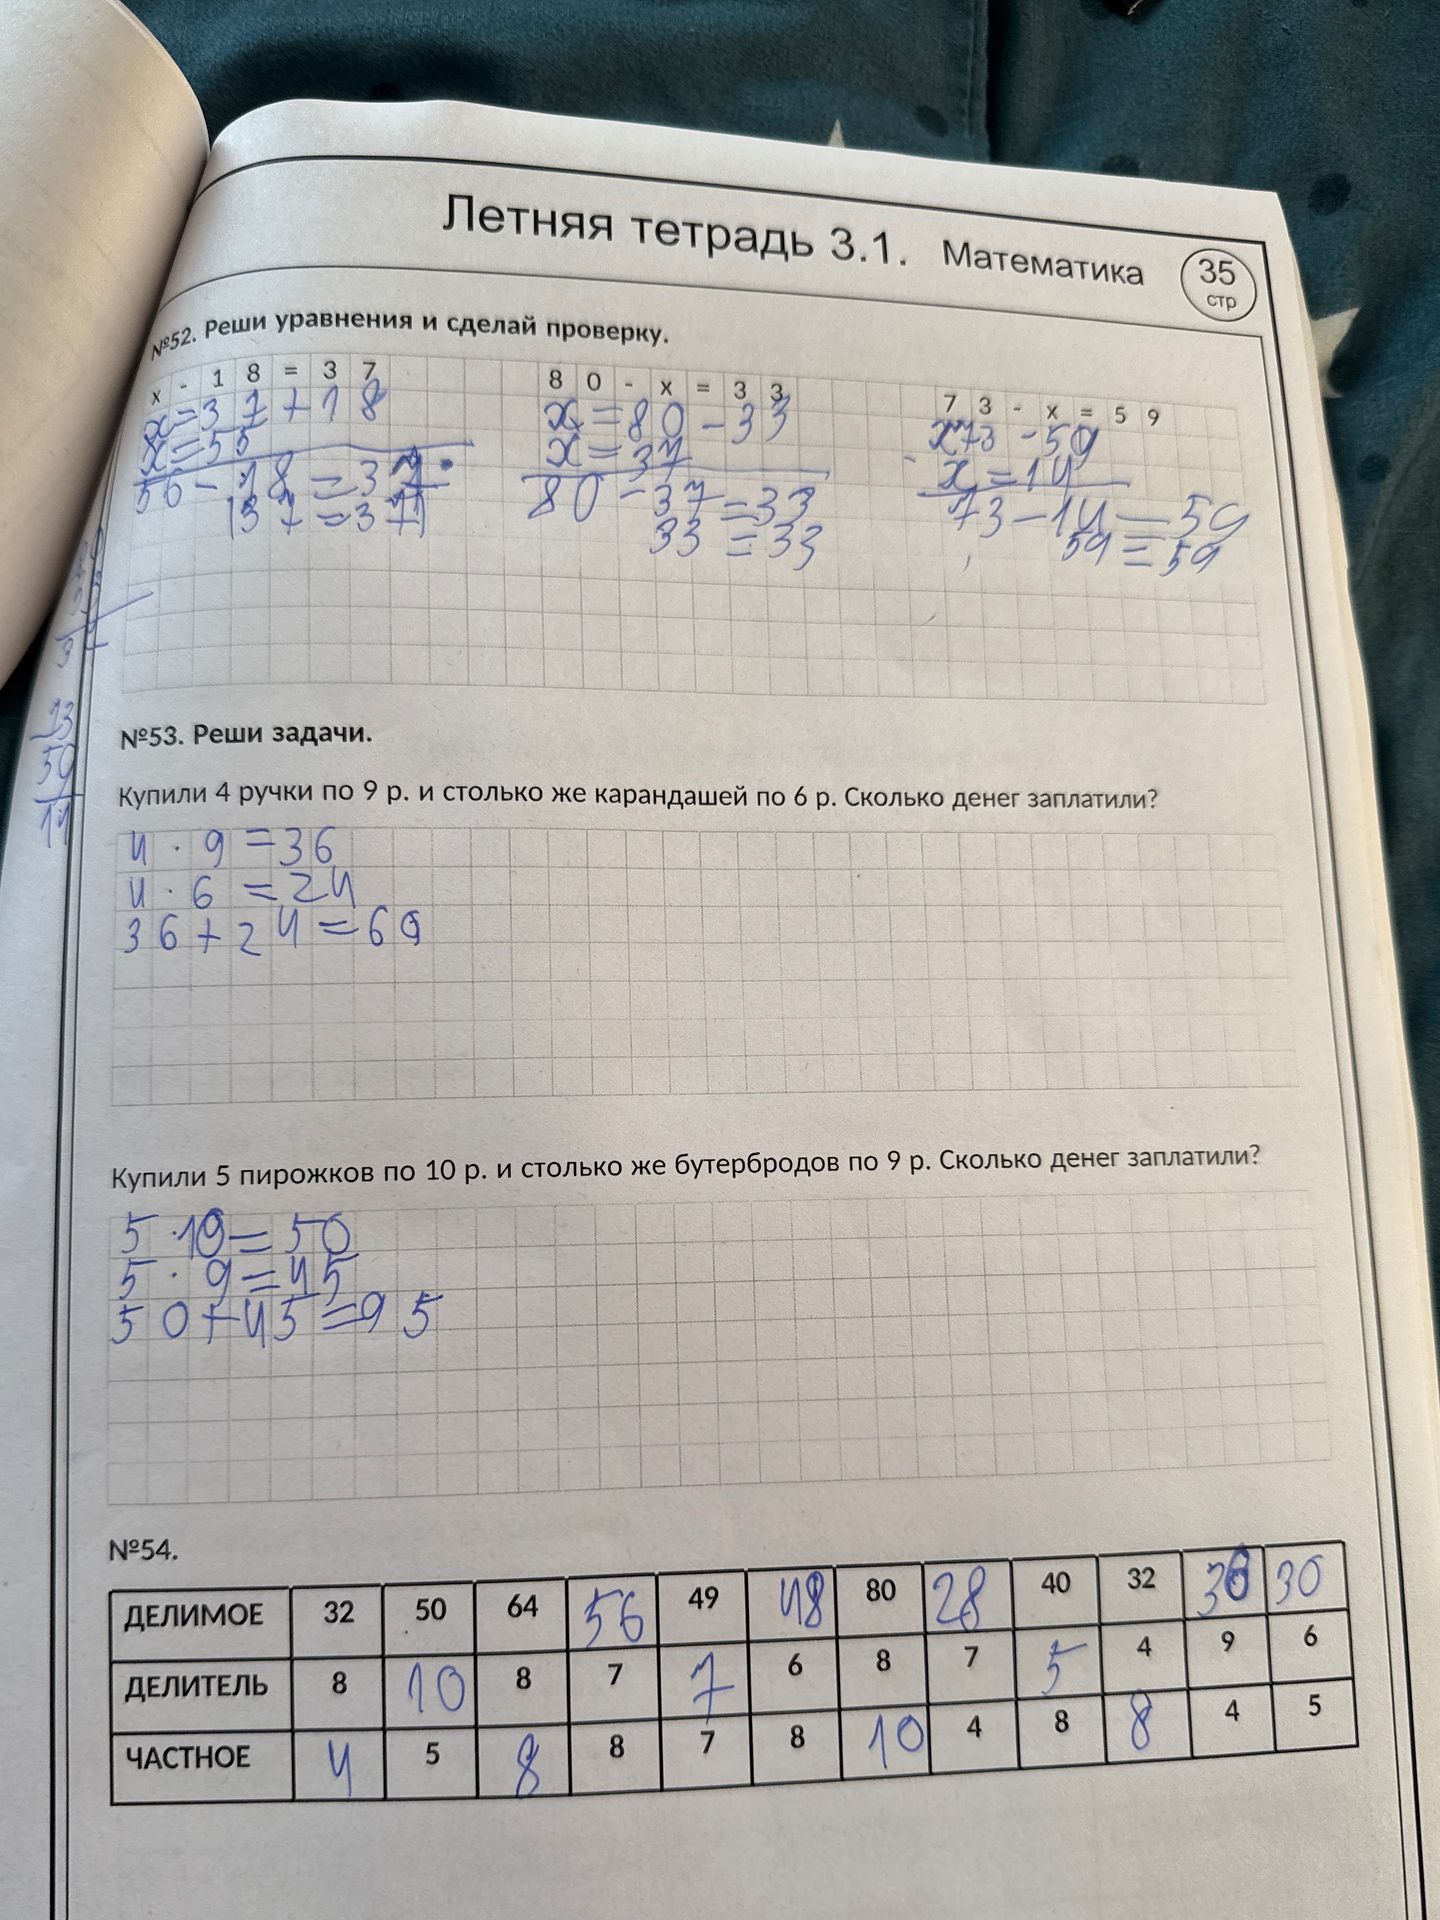 Летняя тетрадь 3.1. Математика
35 стр
№52. Реши уравнения и сделай проверку.
x - 18 = 37
x=37+18
x=55
56-18=37
37=37
80 - x = 33
x=80-33
x=37
80-37=33
33=33
73 - x = 59
x73-59
x=14
73-14=59
59=59
№53. Реши задачи.
Купили 4 ручки по 9 р. и столько же карандашей по 6 р. Сколько денег заплатили?
4·9=36
4·6=24
36+24=60
Купили 5 пирожков по 10 р. и столько же бутербродов по 9 р. Сколько денег заплатили?
5·10=50
5·9=45
50+45=95
№54.
ДЕЛИМОЕ 32 50 64 56 49 48 80 28 40 32 36 30
ДЕЛИТЕЛЬ 8 10 8 7 7 6 8 7 5 4 9 6
ЧАСТНОЕ 4 5 8 8 7 8 10 4 8 8 4 5